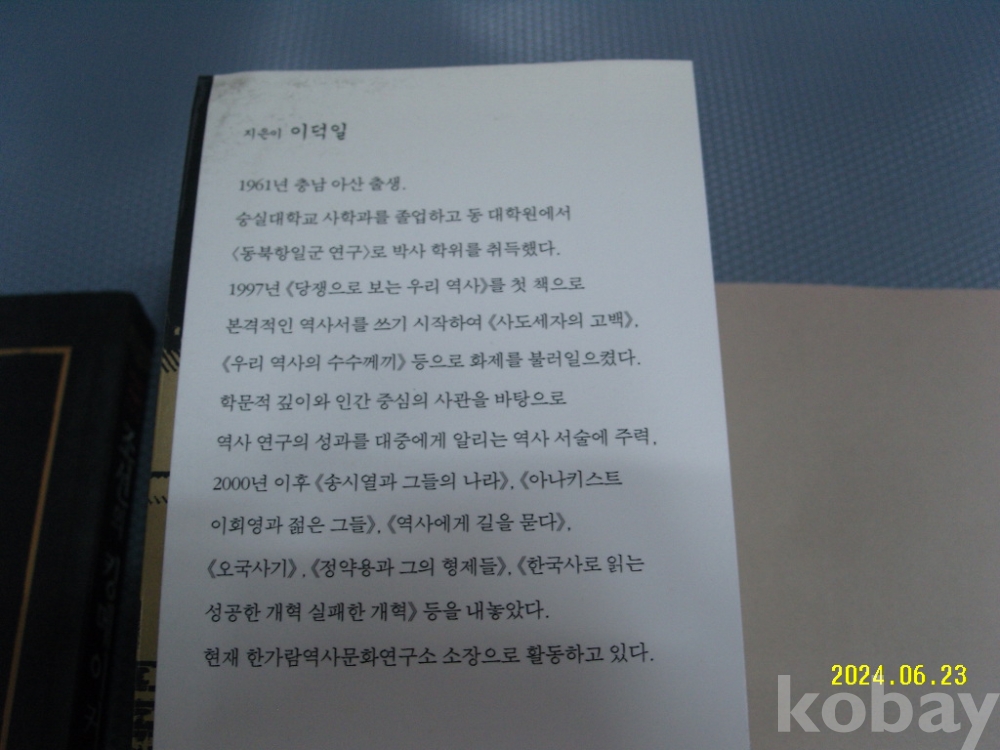 지은이 이덕일
1961년 충남 아산 출생.
숭실대학교 사학과를 졸업하고 동 대학원에서
〈동북항일군 연구〉로 박사 학위를 취득했다.
1997년 《당쟁으로 보는 우리 역사》를 첫 책으로
본격적인 역사서를 쓰기 시작하여 《사도세자의 고백》,
《우리 역사의 수수께끼》 등으로 화제를 불러일으켰다.
학문적 깊이와 인간 중심의 사관을 바탕으로
역사 연구의 성과를 대중에게 알리는 역사 서술에 주력,
2000년 이후 《송시열과 그들의 나라》, 《아나키스트
이회영과 젊은 그들》, 《역사에게 길을 묻다》,
《오국사기》, 《정약용과 그의 형제들》, 《한국사로 읽는
성공한 개혁 실패한 개혁》 등을 내놓았다.
현재 한가람역사문화연구소 소장으로 활동하고 있다.
2024.06.23
kobay